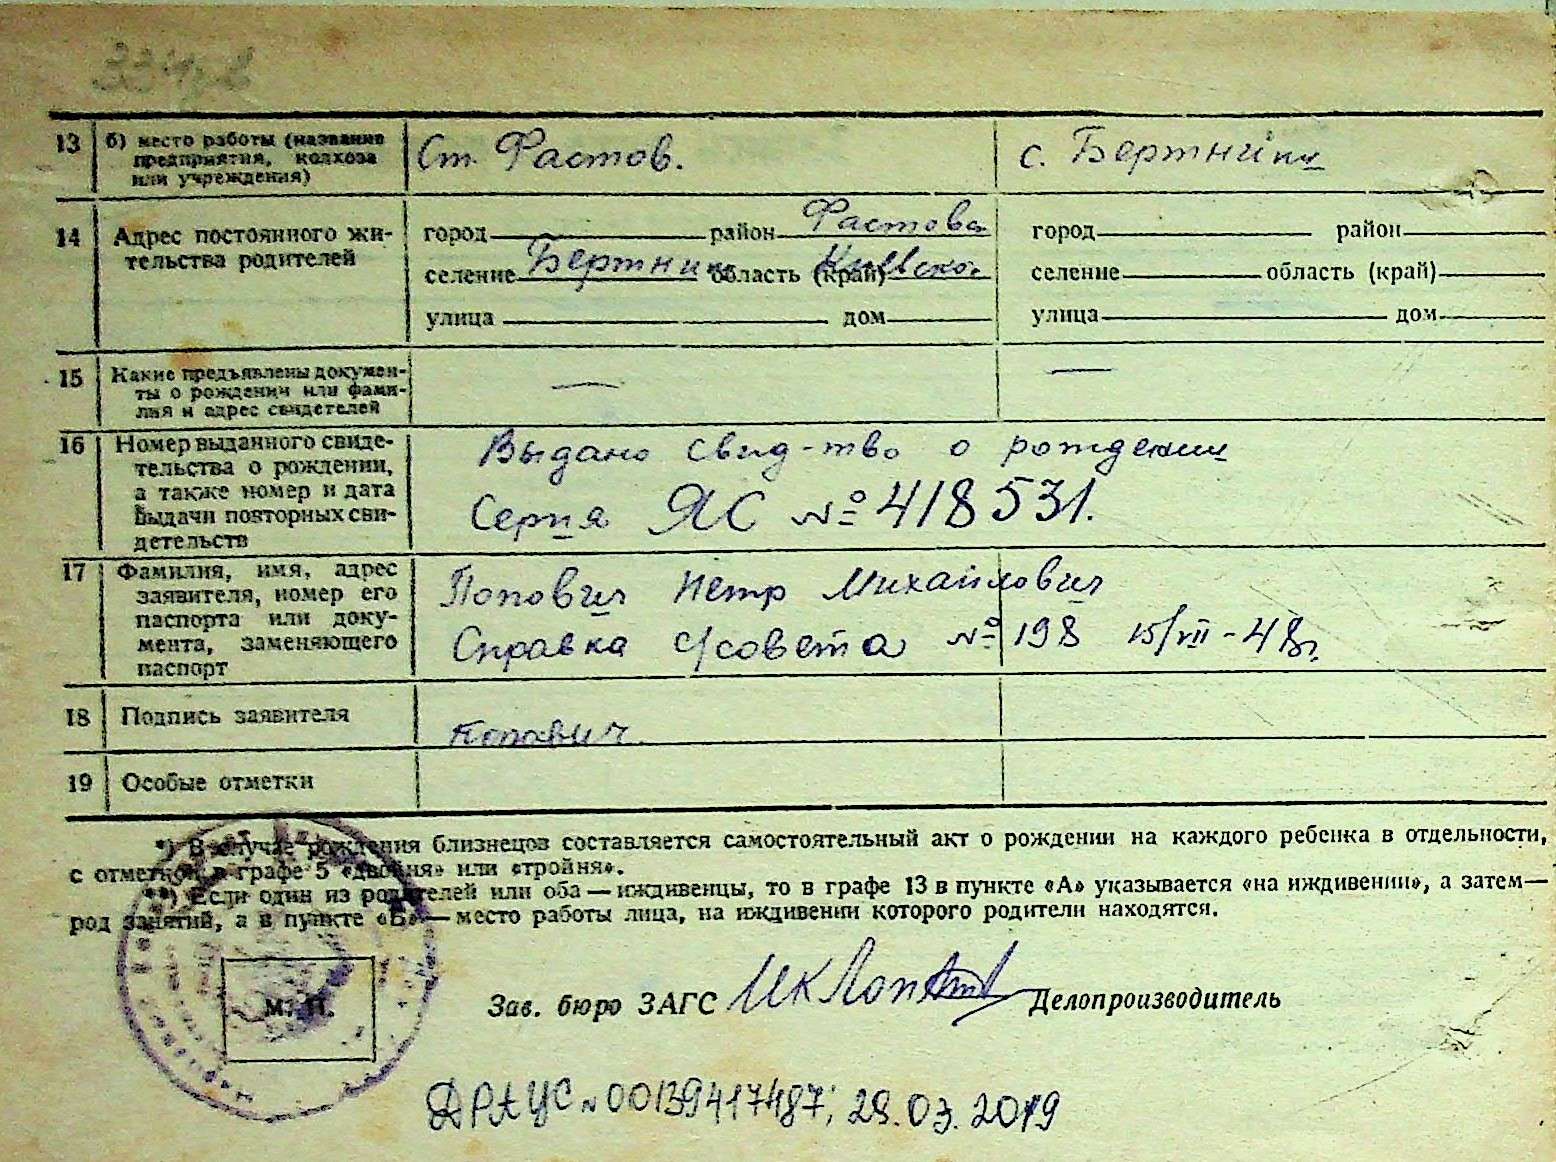 13 б) место работы (название Ст. Фастов. с. Бертники
предприятия, колхоза
или учреждения)
14 Адрес постоянного жи- город район Фастовск город район
тельства родителей селение Бертники область (край) Киевской селение область (край)
улица дом улица дом
15 Какие предъявлены докумен- — —
ты о рождении или фами-
лия и адрес свидетелей
16 Номер выданного свиде- Выдано свид-тво о рождении
тельства о рождении,
а также номер и дата Серия ЯС № 418531.
выдачи повторных сви-
детельств
17 Фамилия, имя, адрес Попович Петр Михайлович
заявителя, номер его
паспорта или доку- Справка с/совета № 198 15/VII-48г.
мента, заменяющего
паспорт
18 Подпись заявителя Попович
19 Особые отметки
*) В случае рождения близнецов составляется самостоятельный акт о рождении на каждого ребенка в отдельности,
с отметкой в графе 5 «двойня» или «тройня».
**) Если один из родителей или оба — иждивенцы, то в графе 13 в пункте «А» указывается «на иждивении», а затем—
род занятий, а в пункте «Б» — место работы лица, на иждивении которого родители находятся.
М. П.
Зав. бюро ЗАГС Делопроизводитель
ДРАЦС № 00139417487; 29.03.2019